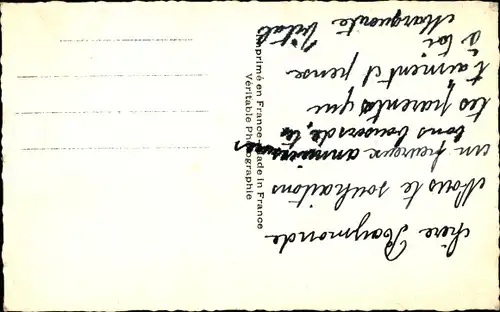 chère Raymonde
Nous te souhaitons
un heureux anniversaire
bons baisers de
tes parents que
t'aiment et pense
à toi
Marguerite Vital
Imprimé en France - Made in France
Véritable Photographie